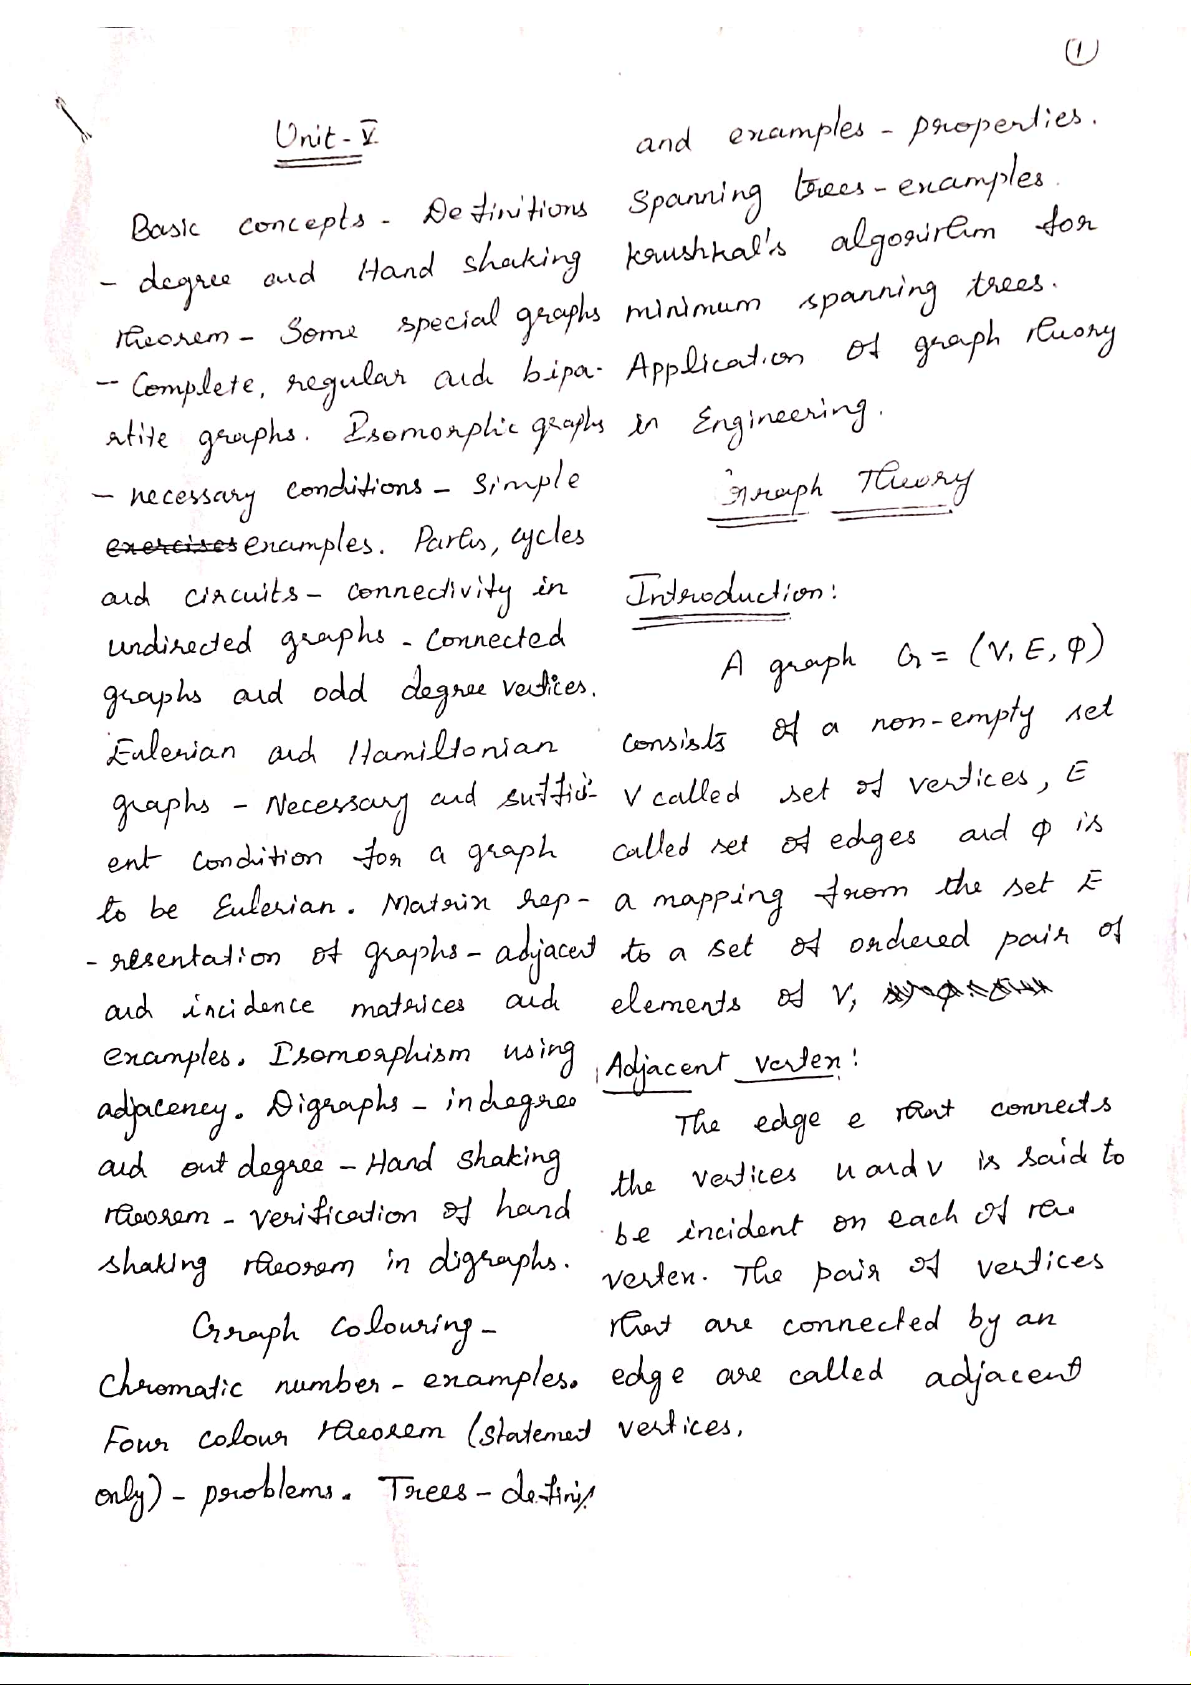 1
Unit - V
Basic concepts - Definitions
- degree and Hand shaking
theorem - Some special graphs
- Complete, regular and bipa-
rtite graphs. Isomorphic graphs
- necessary conditions - Simple
exercises examples. Paths, cycles
and circuits - connectivity in
undirected graphs - connected
graphs and odd degree vertices.
Eulerian and Hamiltonian
graphs - Necessary and suffici-
ent condition for a graph
to be Eulerian. Matrix rep-
- resentation of graphs - adjacent
and incidence matrices and
examples. Isomorphism using
adjacency. Digraphs - indegree
and out degree - Hand shaking
theorem - verification of hand
shaking theorem in digraphs.
Graph Colouring -
Chromatic number - examples.
Four colour theorem (statement
only) - problems. Trees - defini
and examples - properties.
Spanning trees - examples.
krushkal's algorithm for
minimum spanning trees.
Application of graph theory
in Engineering.
Graph Theory
Introduction:
A graph G = (V, E, φ)
consists of a non-empty set
V called set of vertices, E
called set of edges and φ is
a mapping from the set E
to a set of ordered pair of
elements of V,
Adjacent vertex:
The edge e that connects
the vertices u and v is said to
be incident on each of the
vertex. The pair of vertices
that are connected by an
edge are called adjacent
vertices.